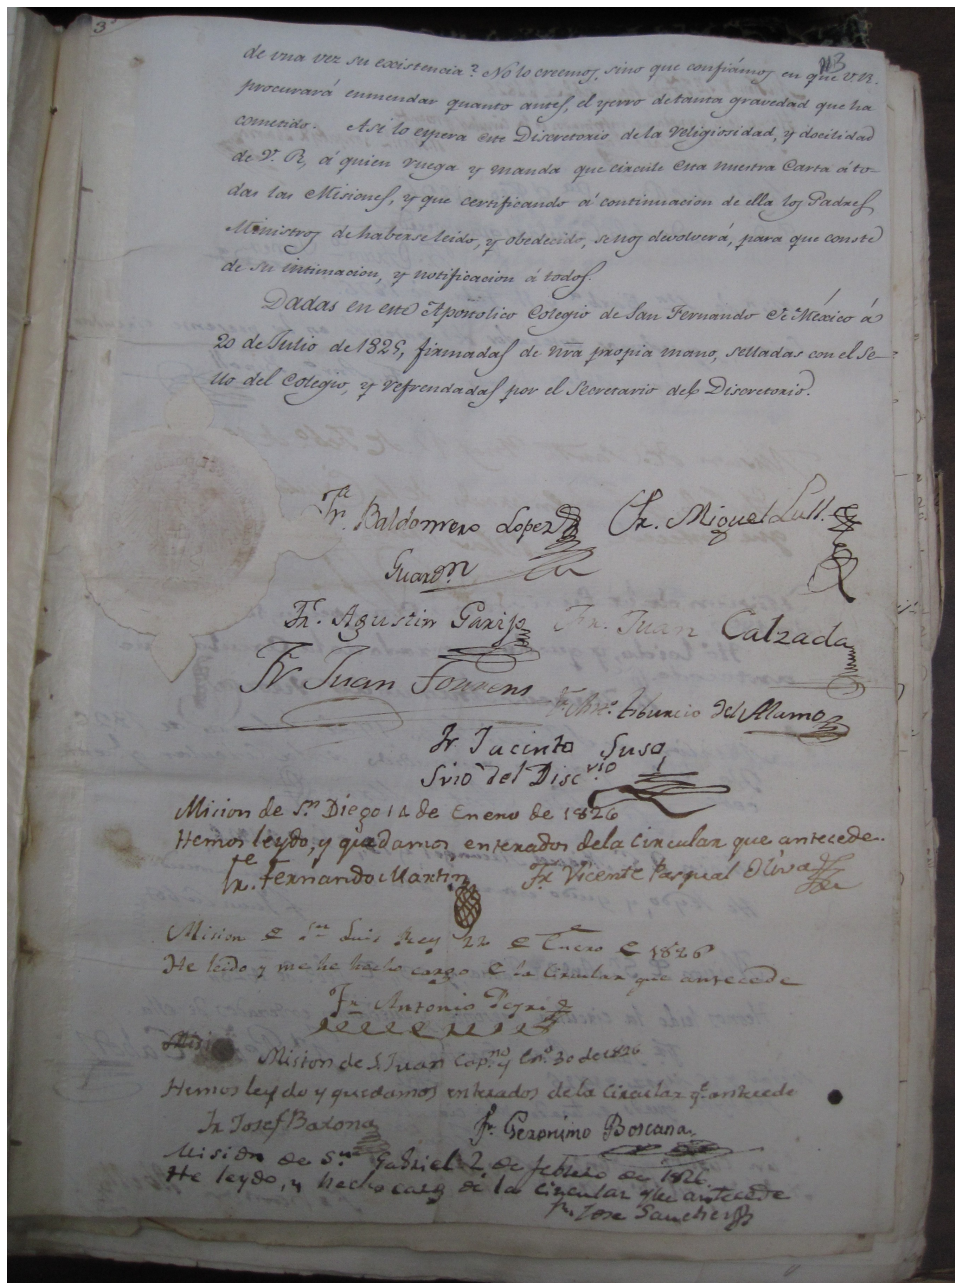 3
113
de vna vez su existencia? No lo creemos, sino que confiámos en que V.R.
procurará enmendar quanto antes, el yerro de tanta gravedad que ha
cometido. Asi lo espera este Discretorio de la religiosidad, y docilidad
de V. R, á quien ruega y manda que circule esta nuestra Carta á to-
das las Misiones, y que certificando á continuacion de ella los Padres
Ministros de haberse leido, y obedecido, se nos devolverá, para que conste
de su intimacion, y notificacion á todos.
Dadas en este Apostolico Colegio de San Fernando de México á
20 de Julio de 1825, firmadas de nrã propia mano, selladas con el Se-
llo del Colegio, y refrendadas por el Secretario del Discretorio.
Fr. Baldomero Lopez Fr. Miguel Lull
Guardn
Fr. Agustin Garijo Fr. Juan Calzada
Fr Juan Fourens
Fr. Tiburcio del Alamo
Fr Jacinto Suso
Srio del Discrio
Micion de Sn Diego 14 de Enero de 1826
Hemos leydo, y quedamos enterados de la circular que antecede.
Fr. Fernando Martin Fr. Vicente Pasqual Oliva
Mision de Sn Luis Rey 22 de Enero de 1826
He leido y me he hecho cargo de la circular que antecede
Fr. Antonio Peyri
Misi
Mision de S. Juan Capno y Eno 30 de 1826
Hemos leydo y quedamos enterados de la circular qe antecede
Fr Josef Barona Fr. Geronimo Boscana
Mision de Sn Gabriel 2 de febrero de 1826
He leydo, y hecho cargo de la circular que antecede
Fr. Jose Sanchez